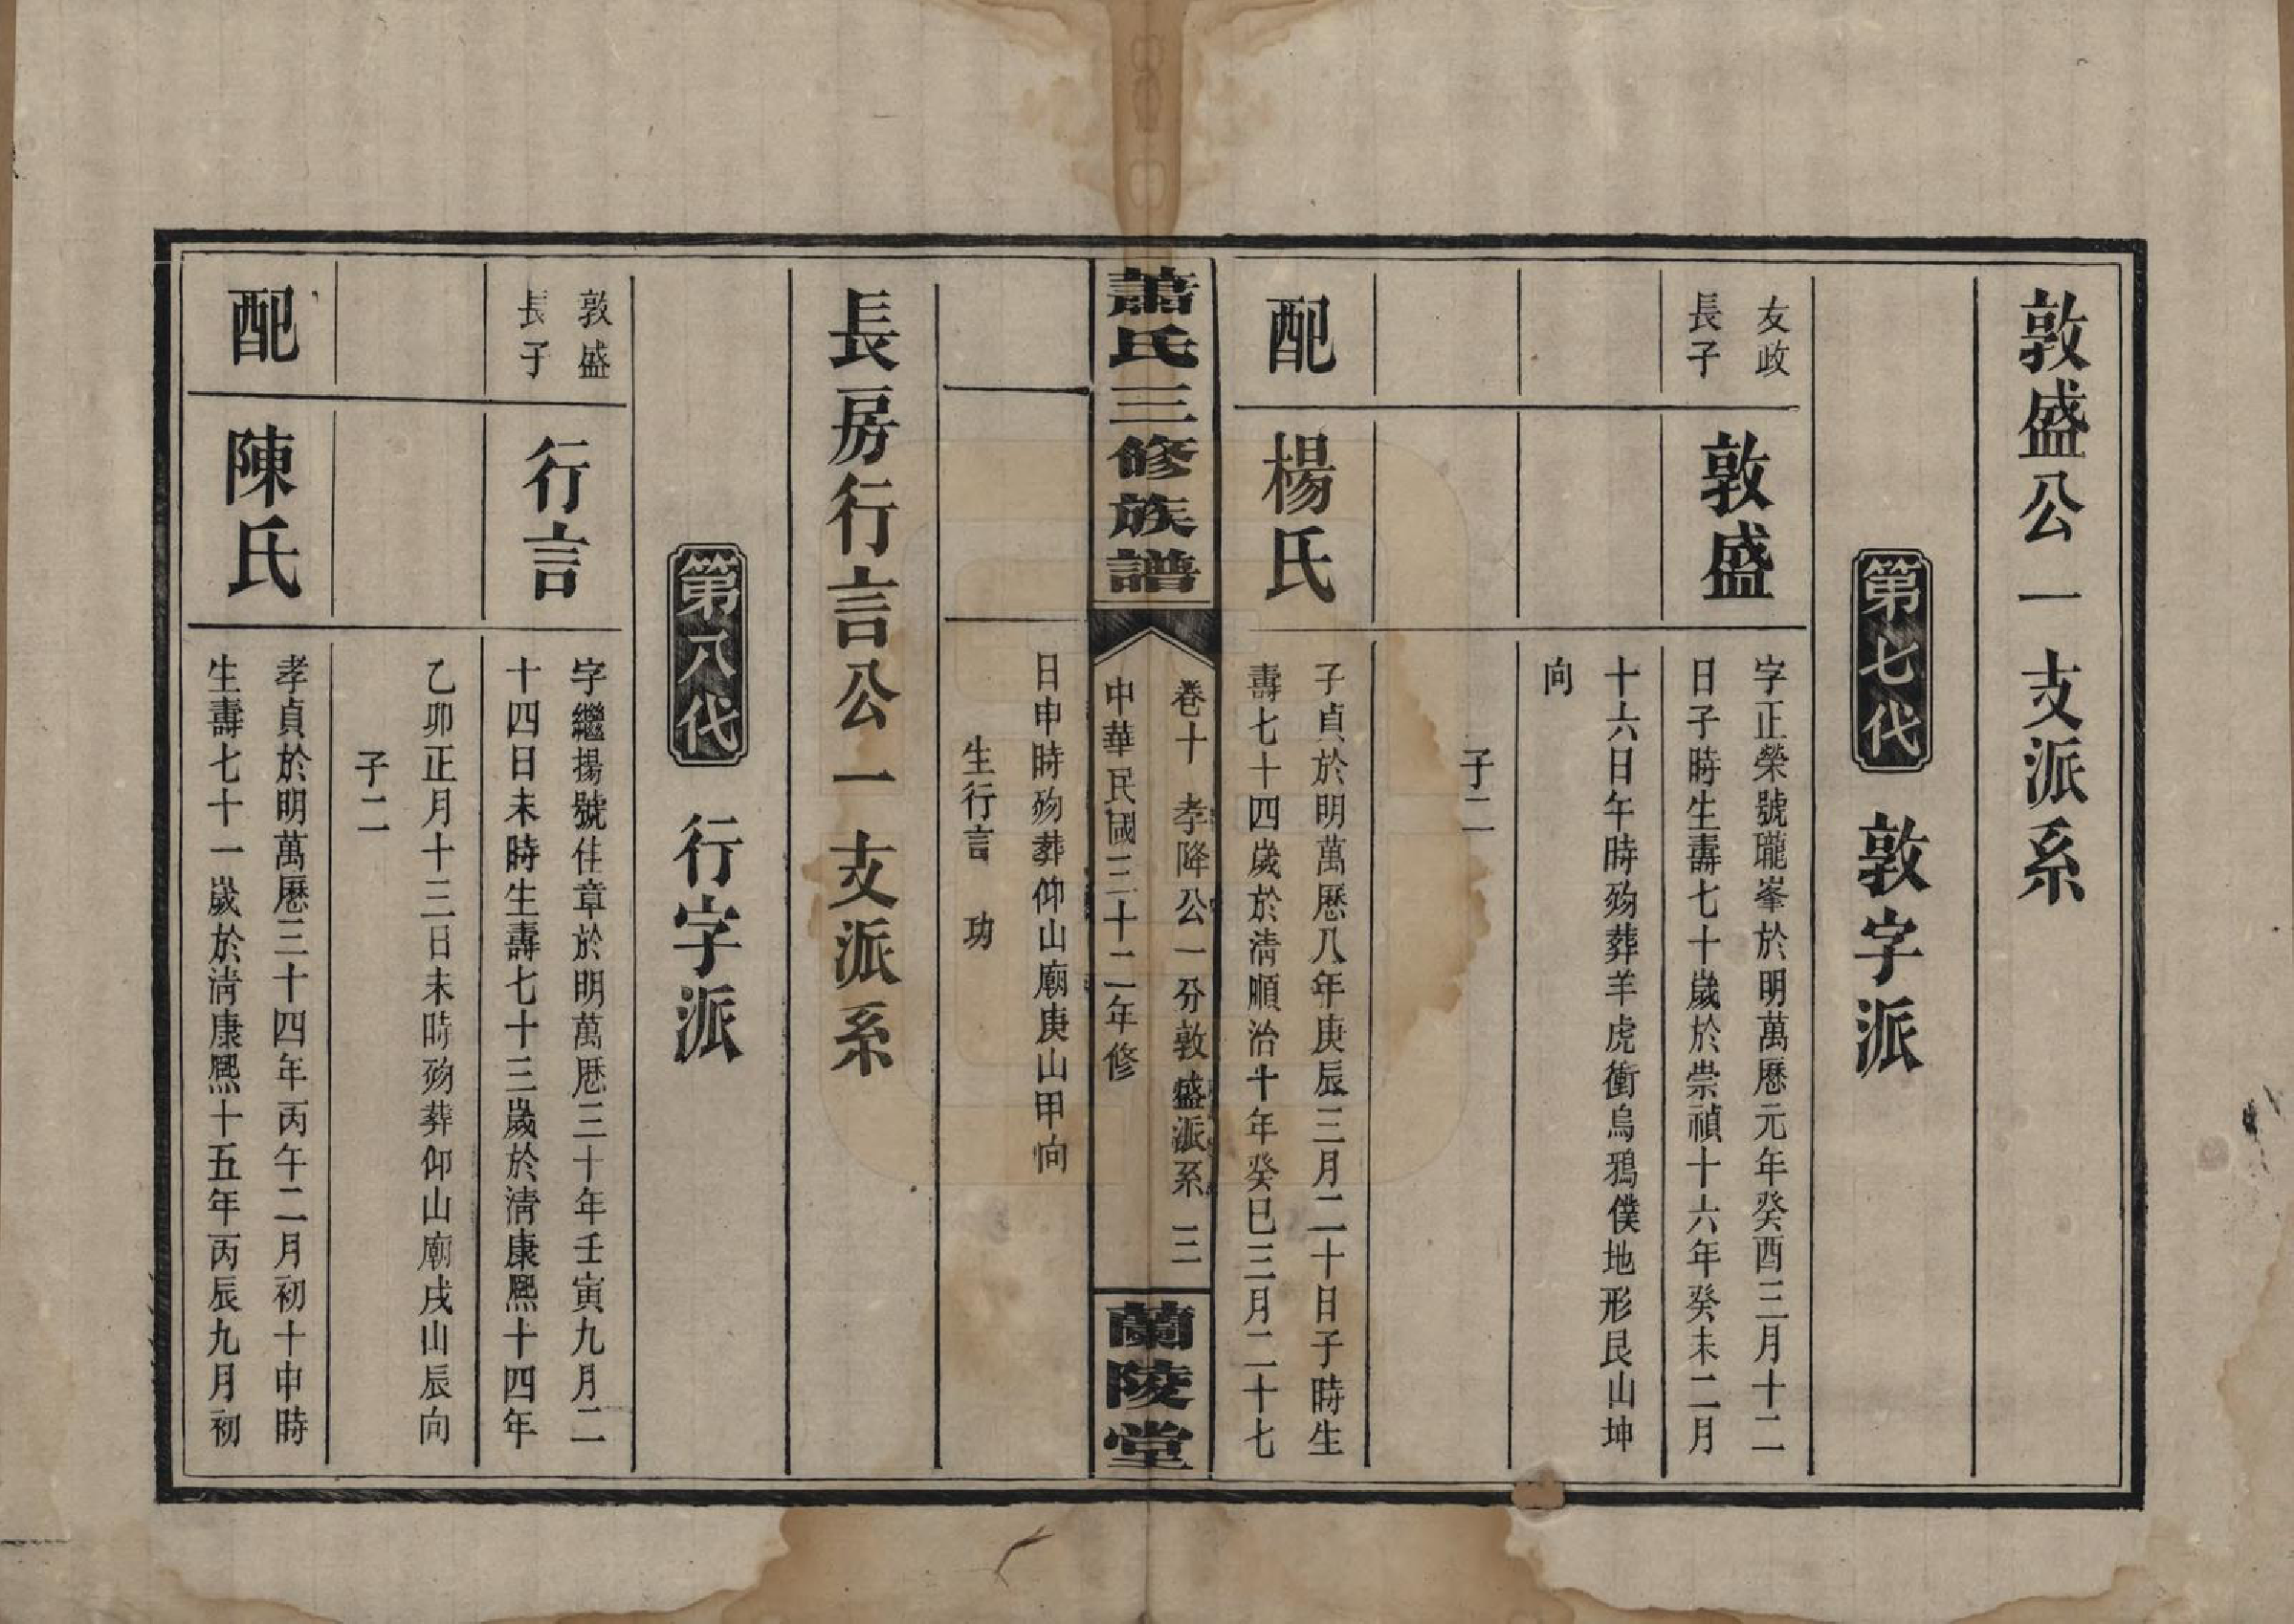 敦盛公一支派系
第七代 敦字派
友政
長子
敦盛
字正榮號瓏峯於明萬歷元年癸酉三月十二
日子時生壽七十歲於崇禎十六年癸未二月
十六日午時歿葬羊虎衝烏鴉僕地形艮山坤
向
子二
配
楊氏
子貞於明萬歷八年庚辰三月二十日子時生
壽七十四歲於清順治十年癸巳三月二十七
蕭氏三修族譜
卷十 孝降公一分敦盛派系 三
中華民國三十二年修
蘭陵堂
日申時歿葬仰山廟庚山甲向
生行言 功
長房行言公一支派系
第八代 行字派
敦盛
長子
行言
字繼揚號佳章於明萬歷三十年壬寅九月二
十四日未時生壽七十三歲於清康熙十四年
乙卯正月十三日未時歿葬仰山廟戌山辰向
子二
配
陳氏
孝貞於明萬歷三十四年丙午二月初十申時
生壽七十一歲於清康熙十五年丙辰九月初